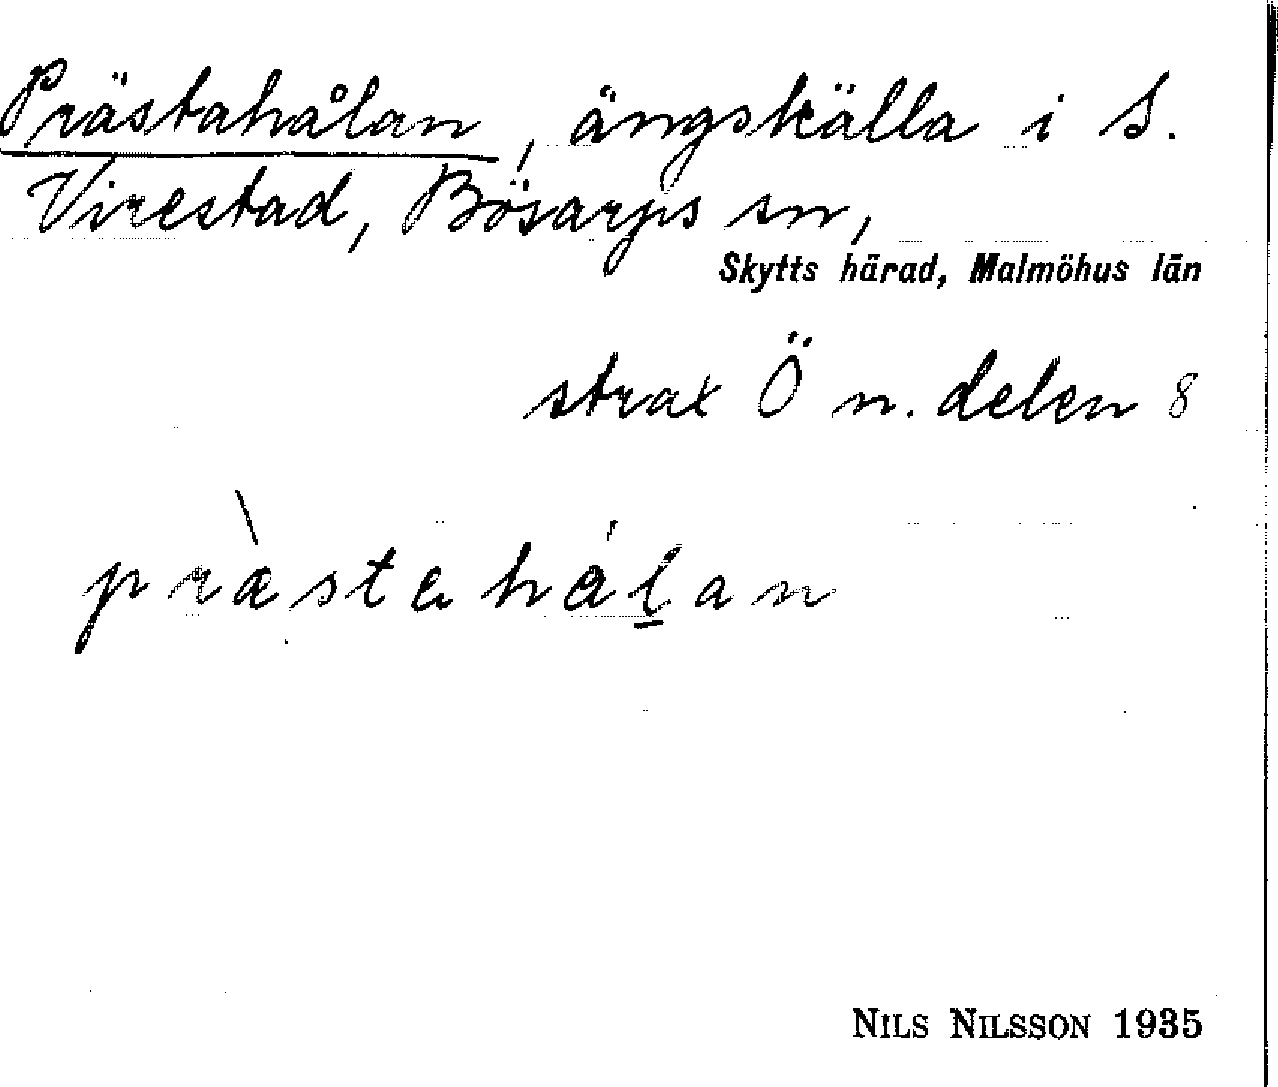 Prästahålan, ängskälla i S.
Virestad, Bösarps sn,
Skytts härad, Malmöhus län
strax Ö n. delen 8
prὰstahál̲an
NILS NILSSON 1935